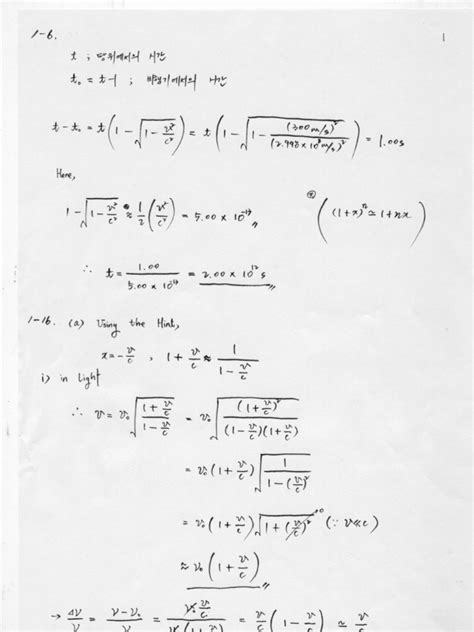 1
1-6.
t ; 땅위에서의 시간
t₀ = t-1 ; 비행기에서의 시간
t - t₀ = t(1 - √(1 - v²/c²)) = t(1 - √(1 - (300 m/s)²/(2.998 × 10⁸ m/s)²)) = 1.00s
Here,
1 - √(1 - v²/c²) ≈ 1/2 (v²/c²) = 5.00 × 10⁻¹³ ((1+x)ⁿ ≃ 1+nx)
∴ t = 1.00/(5.00 × 10⁻¹³) = 2.00 × 10¹² s
1-16. (a) Using the Hint,
x = -v/c , 1 + v/c ≈ 1/(1 - v/c)
i) in Light
∴ ν = ν₀√((1 + v/c)/(1 - v/c)) = ν₀√((1 + v/c)²/((1 - v/c)(1 + v/c)))
= ν₀(1 + v/c)√(1/(1 - (v/c)²))
= ν₀(1 + v/c)√(1 + (v/c)²) →0 (∵ v≪c)
≈ ν₀(1 + v/c)
→ Δν/ν = (ν - ν₀)/ν = (ν₀ v/c)/(ν₀(1 + v/c)) = v/c (1 - v/c) ≃ v/c